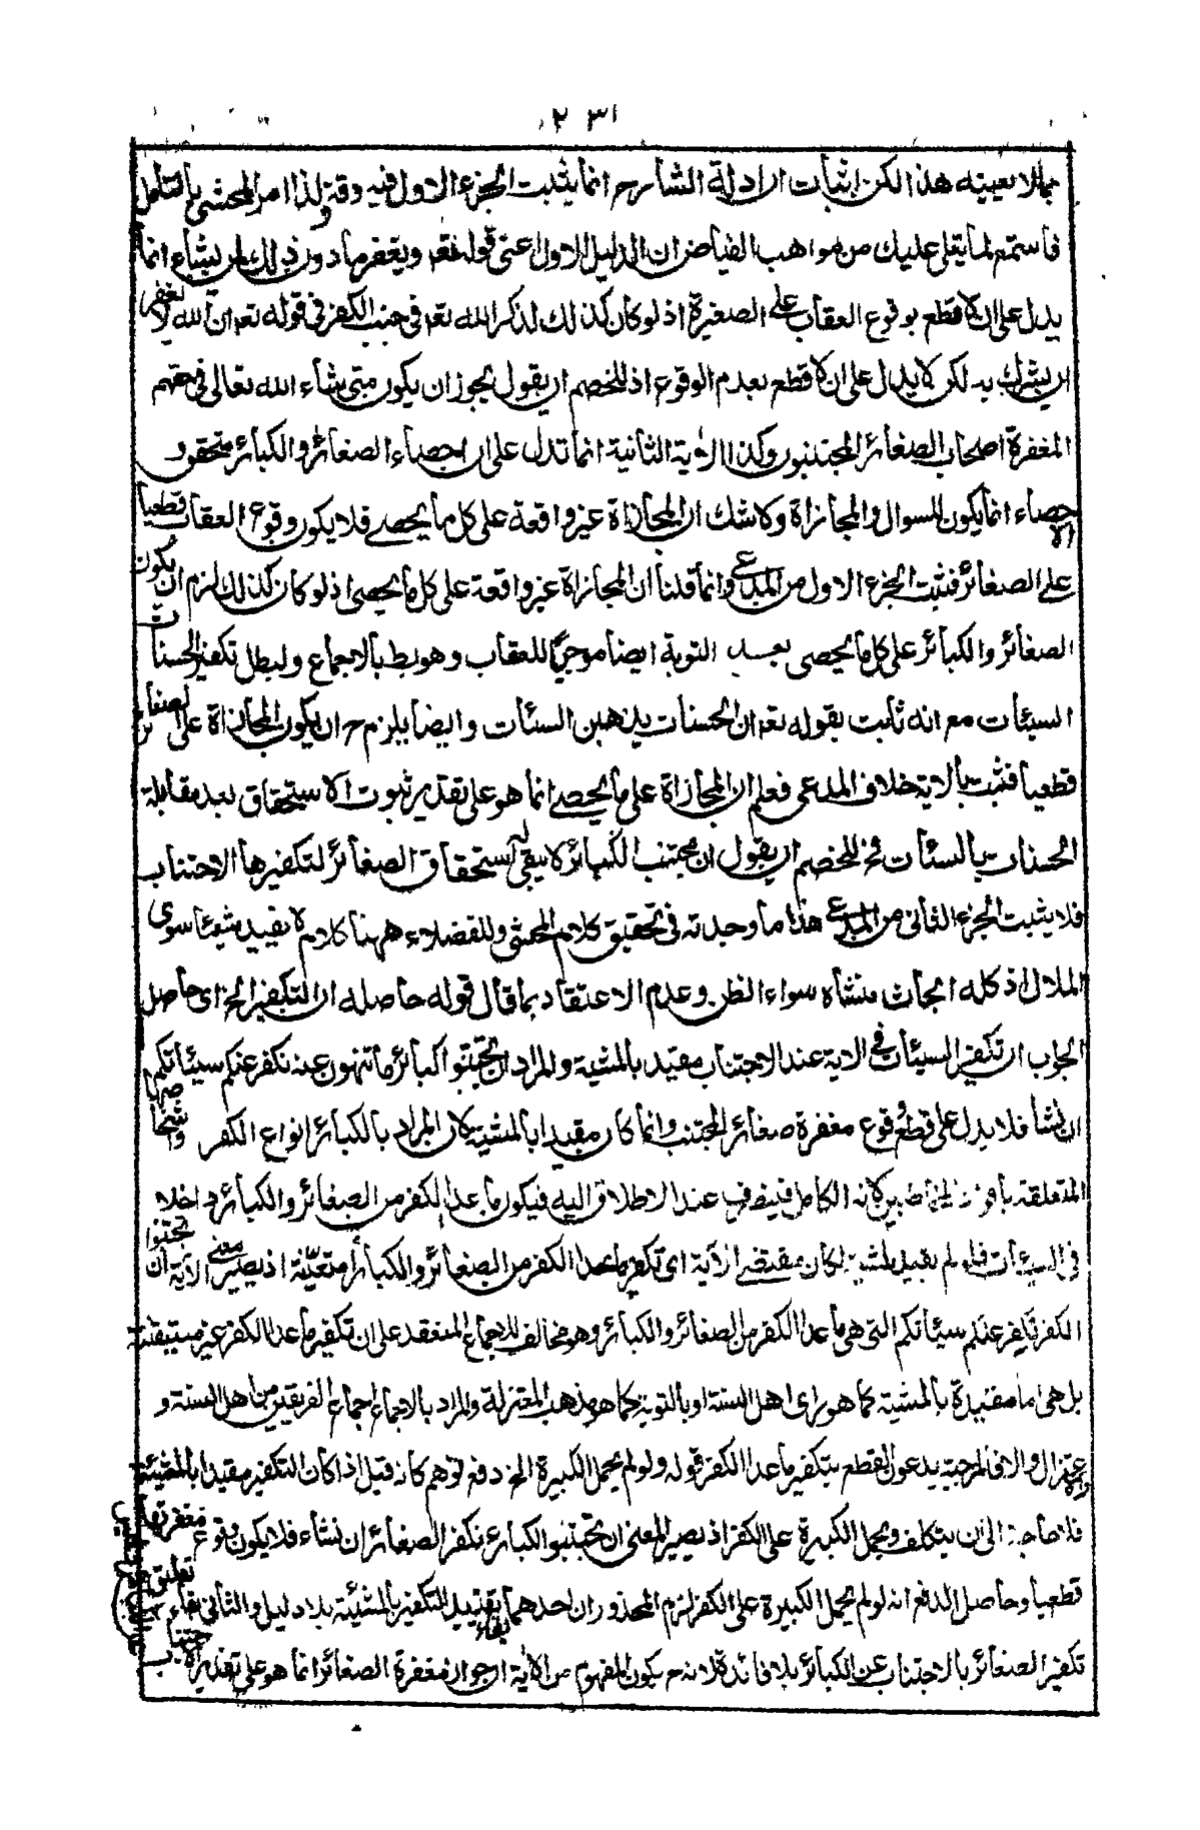 ٢٣١
بما لا يعينه هذا لكن اثبات ان ادلة الشارح انما يثبت الجزء الاول فيه دقة ولذا امر المحشى بالتأمل
فاستمع لما يتلى عليك من مواهب الفياض ان الدليل الاول عنى قوله تعه ويغفر ما دون ذلك لمن يشاء انما
يدل على ان لا قطع بوقوع العقاب على الصغيرة اذ لو كان كذلك لذكر الله تعه فى جنب الكفر فى قوله تعه ان الله لا يغفر
ان يشرك به لكن لا يدل على ان لا قطع بعدم الوقوع اذ للخصم ان يقول يجوز ان يكون متى يشاء الله تعالى فى حقهم
المغفرة اصحاب الصغائر المجتنبون وكذا الاية الثانية انما تدل على ان احصاء الصغائر والكبائر متحقق و
الاحصاء انما يكون للسوال والمجازاة ولا شك ان المجازاة غير واقعة على كل ما يحصى فلا يكون وقوع العقاب قطعيا
على الصغائر فثبت الجزء الاول من المدعى وانما قلنا ان المجازاة غير واقعة على كل ما يحصى اذ لو كان كذلك لزم ان يكون
الصغائر والكبائر على كل ما يحصى بعد التوبة ايضا موجبا للعقاب وهو بط بالاجماع ولبطل تكفير الحسنات
السيئات مع انه ثابت بقوله تعه ان الحسنات يذهبن السيئات وايضا يلزم ح ان يكون المجازاة على الصغائر
قطعيا فثبت بالاية خلاف المدعى فعلم ان المجازاة على ما يحصى انما هو على تقدير ثبوت الاستحقاق بعد مقابلة
الحسنات بالسيئات فح للخصم ان يقول ان مجتنب الكبائر لا يبقى له استحقاق الصغائر لتكفيرها الاجتناب
فلا يثبت الجزء الثانى من المدعى هذا ما وجدته فى تحقيق كلام المحشى وللفضلاء ههنا كلام لا يفيد شيئا سوى
الملال اذ كله ابحاث منشأه سواء الظن وعدم الاعتقاد بما قال قوله حاصله ان التكفير الخ اى حاصل
الجواب ان تكفير السيئات فى الاية عند الاجتناب مقيد بالمشية والمراد ان تجتنبوا كبائر ما تنهون عنه نكفر عنكم سيئاتكم
ان نشأ فلا يدل على قطع وقوع مغفرة صغائر المجتنب وانما كان مقيدا بالمشية لان المراد بالكبائر انواع الكفر
المتعلقة بافراد المخاطبين لانه الكامل فينصرف عند الاطلاق اليه فيكون ما عدا الكفر من الصغائر والكبائر داخلا
فى السيئات فلو لم يقيد بالمشية لكان مقتضى الآية اى تكفير ما عدا الكفر من الصغائر والكبائر متعينة اذ يصير معنى الاية ان تجتنبوا
الكفر نكفر عنكم سيئاتكم التى هى ما عدا الكفر من الصغائر والكبائر وهو مخالف للاجماع المنعقد على ان تكفير ما عدا الكفر غير متيقنة
بل هى اما مقيدة بالمشية كما هو راى اهل السنة او بالتوبة كما هو مذهب المعتزلة والمراد بالاجماع اجماع الفريقين من اهل السنة و
الاعتزال والا فالمرجية يدعون القطع بتكفير ما عدا الكفر قوله ولو لم يحمل الكبيرة الخ دفع توهم كانه قيل اذا كان التكفير مقيدا بالمشية
فلا حاجة الى ان يتكلف ويحمل الكبيرة على الكفر اذ يصير المعنى ان تجتنبوا الكبائر نكفر الصغائر ان نشاء فلا يكون وقوع مغفرتها
قطعيا وحاصل الدفع انه لو لم يحمل الكبيرة على الكفر لزم المحذوران احدهما تقييد التكفير بالمشيئة بلا دليل والثانى بقاء تعليق
تكفير الصغائر بالاجتناب عن الكبائر بلا فائدة لانه ح يكون المفهوم من الاية ان جواز مغفرة الصغائر انما هو على تقدير الاجتناب